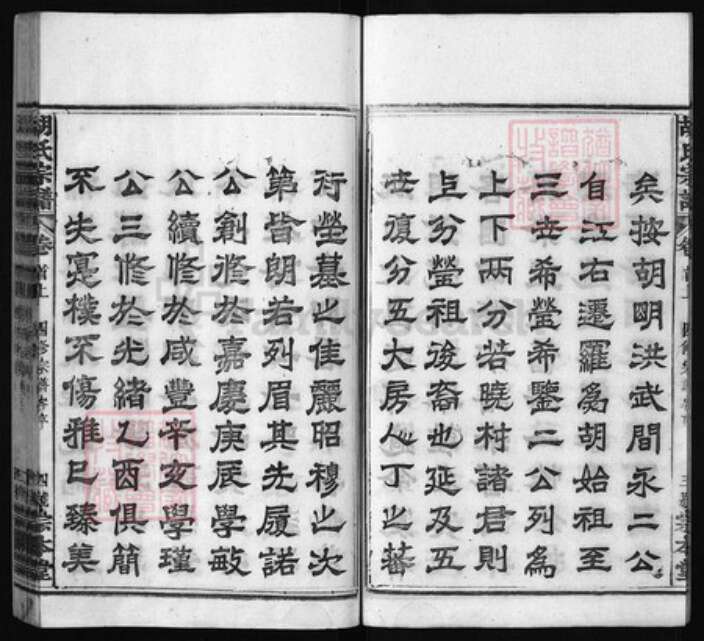 矣按胡明洪武間永二公
自江右遷羅為胡始祖至
三世希瑩希鑒二公列為
上下兩分若曉村諸君則
上分瑩祖後裔也延及五
世復分五大房人丁之蕃
衍塋墓之佳麗昭穆之次
第皆朗若列眉其先履諾
公創修於嘉慶庚辰學敏
公續修於咸豐辛亥學瑾
公三修於光緒乙酉俱簡
不失寔樸不傷雅已臻美
胡氏宗譜
卷首上
四修宗譜
敦本堂